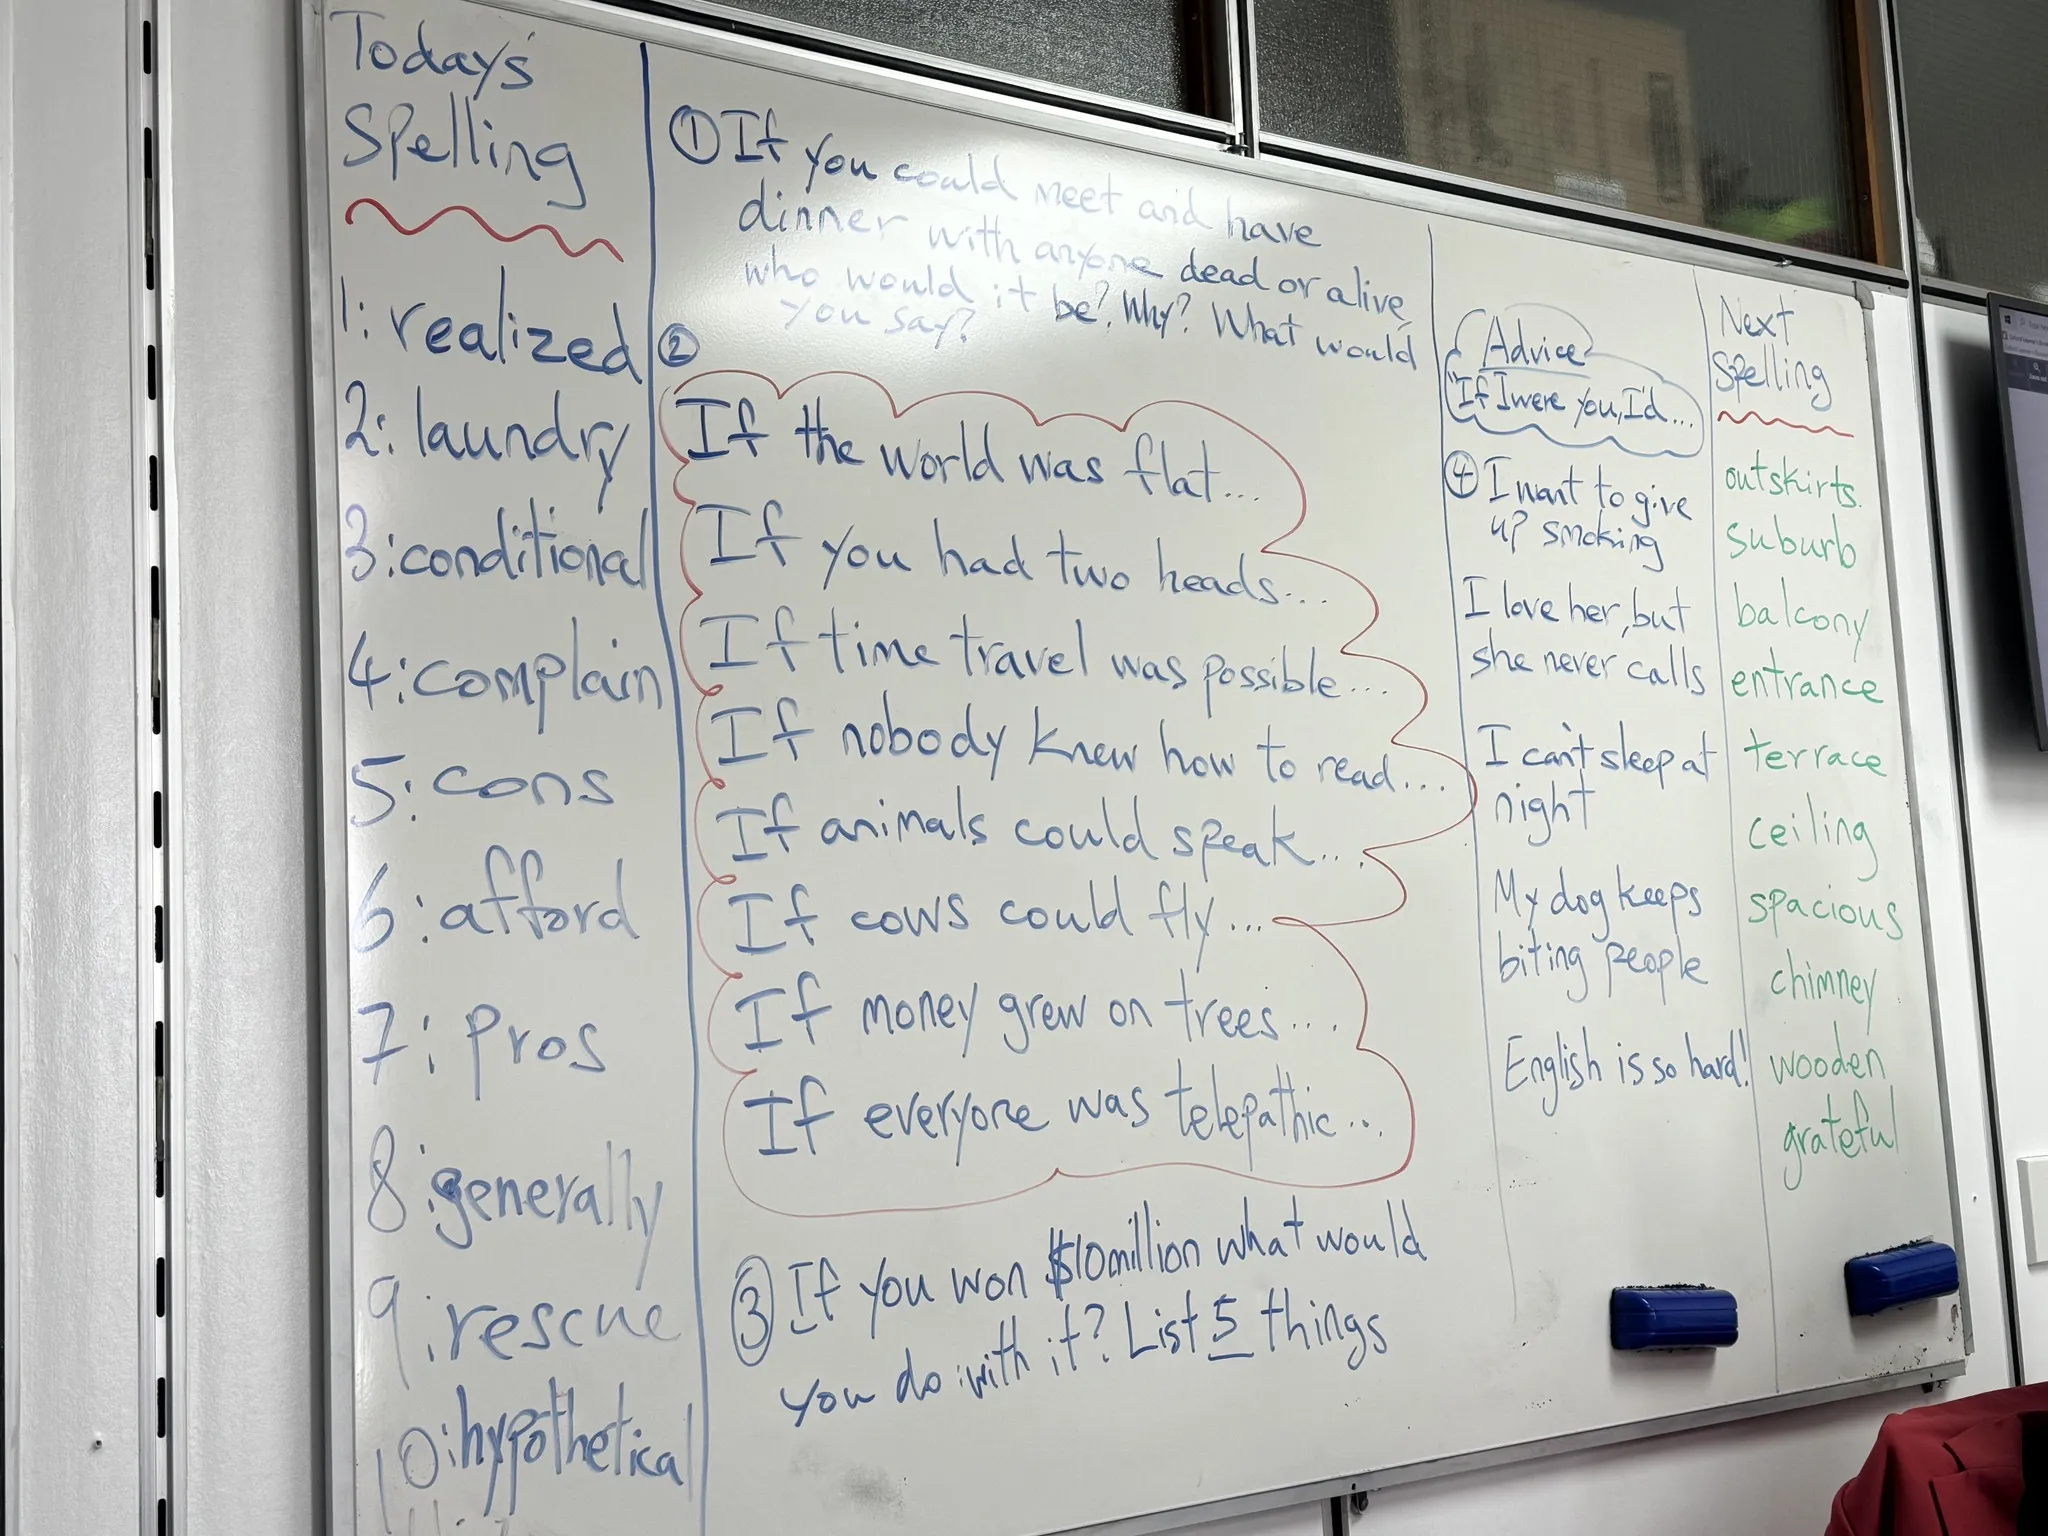 Today's
Spelling
1: realized
2: laundry
3: conditional
4: complain
5: cons
6: afford
7: pros
8: generally
9: rescue
10: hypothetical
① If you could meet and have
dinner with anyone dead or alive,
who would it be? Why? What would
you say?
②
If the world was flat...
If you had two heads...
If time travel was possible...
If nobody knew how to read...
If animals could speak...
If cows could fly...
If money grew on trees...
If everyone was telepathic...
③ If you won $10million what would
you do with it? List 5 things
Advice
"If I were you, I'd...
④ I want to give
up smoking
I love her, but
she never calls
I can't sleep at
night
My dog keeps
biting people
English is so hard!
Next
Spelling
outskirts
suburb
balcony
entrance
terrace
ceiling
spacious
chimney
wooden
grateful